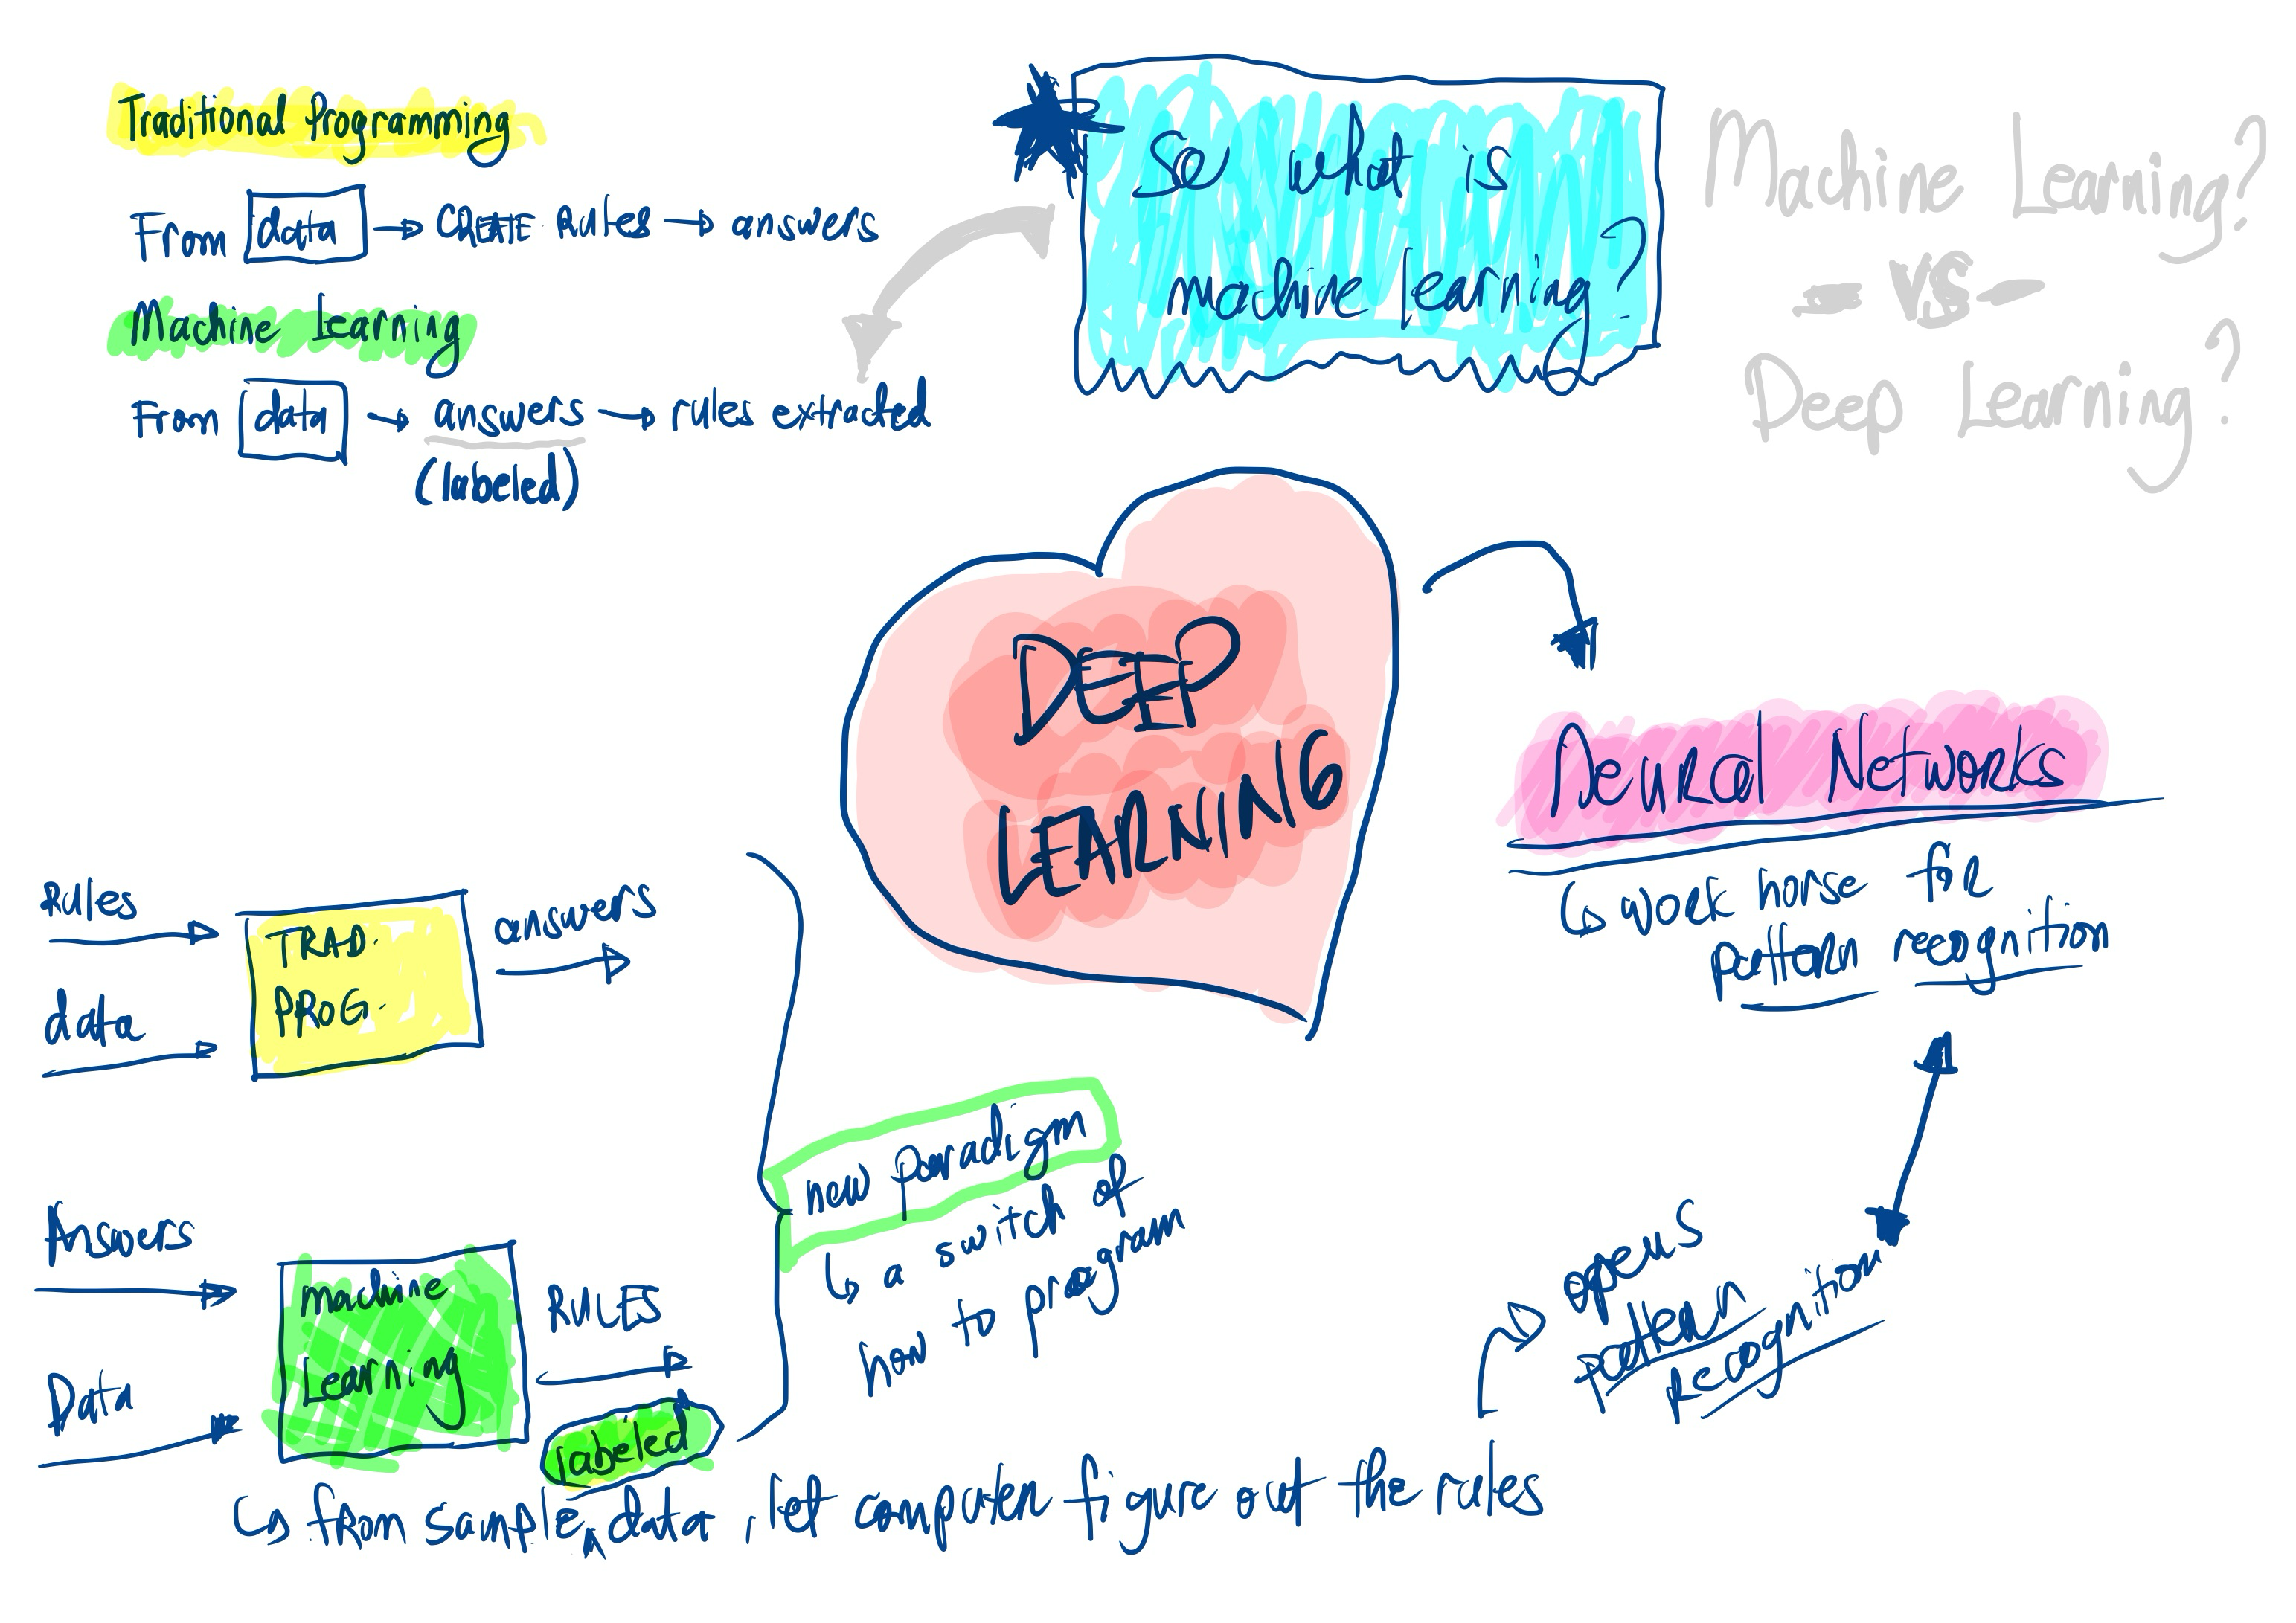 Traditional Programming
From data → CREATE RULES → answers
Machine Learning
From data → answers → rules extracted
(labeled)
So what is
machine learning?
Machine Learning?
- VS -
Deep Learning?
DEEP
LEARNING
Neural Networks
↳ work horse for
pattern recognition
Rules
data
TRAD.
PROG.
answers
Answers
Data
machine
Learning
RULES
new paradigm
↳ a switch of
how to program
opens
pattern
recognition
labeled
↳ from sample^data, let computer figure out the rules